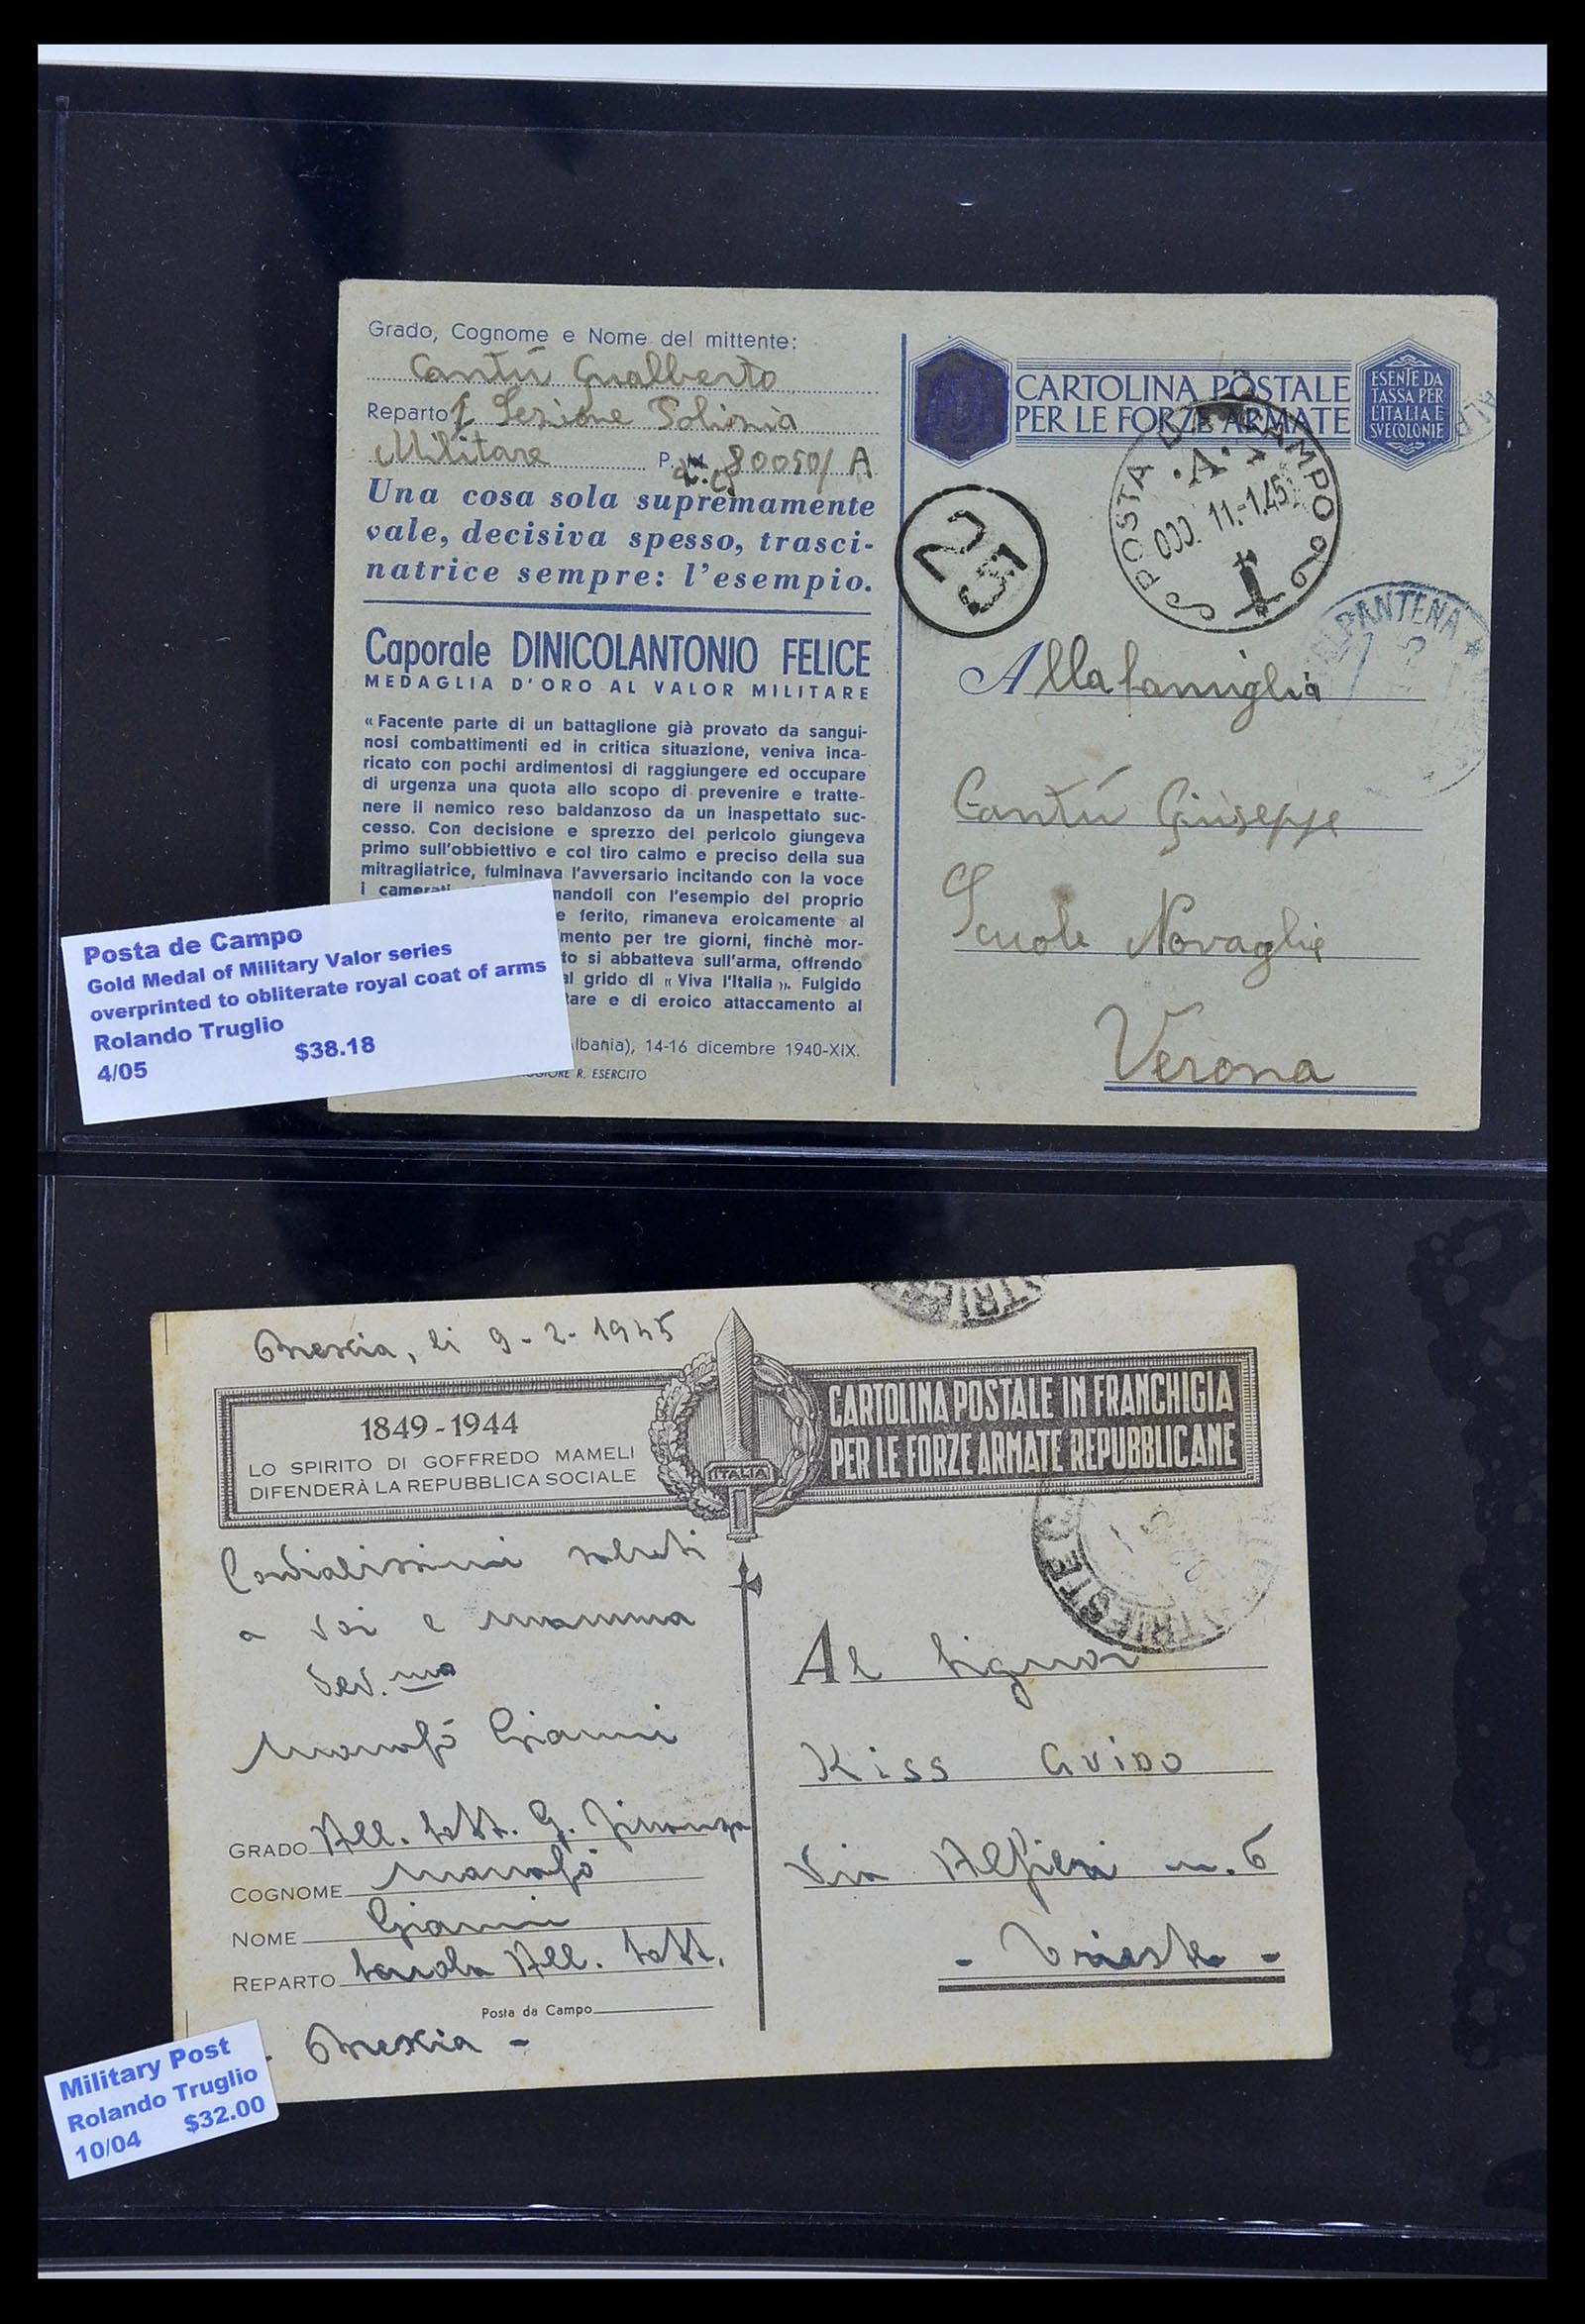 Grado, Cognome e Nome del mittente:
Cantú Gualberto
Reparto 1 Sezione Polizia
Militare P. 80050/ A
Una cosa sola supremamente
vale, decisiva spesso, trasci-
natrice sempre: l'esempio.
Caporale DINICOLANTONIO FELICE
MEDAGLIA D'ORO AL VALOR MILITARE
« Facente parte di un battaglione già provato da sangui-
nosi combattimenti ed in critica situazione, veniva inca-
ricato con pochi ardimentosi di raggiungere ed occupare
di urgenza una quota allo scopo di prevenire e tratte-
nere il nemico reso baldanzoso da un inaspettato suc-
cesso. Con decisione e sprezzo del pericolo giungeva
primo sull'obbiettivo e col tiro calmo e preciso della sua
mitragliatrice, fulminava l'avversario incitando con la voce
i camerati mandoli con l'esempio del proprio
e ferito, rimaneva eroicamente al
mento per tre giorni, finchè mor-
to si abbatteva sull'arma, offrendo
al grido di « Viva l'Italia ». Fulgido
tare e di eroico attaccamento al
lbania), 14-16 dicembre 1940-XIX.
GIORE R. ESERCITO
CARTOLINA POSTALE
PER LE FORZE ARMATE
ESENTE DA
TASSA PER
L'ITALIA E
SVE COLONIE
POSTA DA CAMPO
·A·
11.-1.45
25
PANTENA
Alla famiglia
Cantú Giuseppe
Scuole Novaglie
Verona
Posta de Campo
Gold Medal of Military Valor series
overprinted to obliterate royal coat of arms
Rolando Truglio
4/05 $38.18
Brescia, li 9-2-1945
1849-1944
LO SPIRITO DI GOFFREDO MAMELI
DIFENDERÀ LA REPUBBLICA SOCIALE
ITALIA
CARTOLINA POSTALE IN FRANCHIGIA
PER LE FORZE ARMATE REPUBBLICANE
TRIESTE
Cordialissimi saluti
a Voi e mamma
Dev.mo
Gianni
GRADO All.
COGNOME
NOME Gianni
REPARTO Scuola All.
Posta da Campo
Brescia -
Al Signor
Kiss Guido
Via Alfieri n. 6
- Trieste -
Military Post
Rolando Truglio
10/04 $32.00